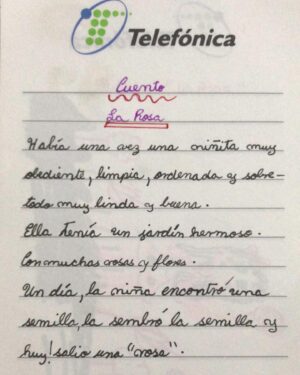 Telefónica
Cuento
La Rosa
Había una vez una niñita muy
obediente, limpia, ordenada y sobre-
todo muy linda y buena.
Ella tenía un jardín hermoso.
Con muchas rosas y flores.
Un día, la niña encontró una
semilla, la sembró la semilla y
huy! salio una "rosa".